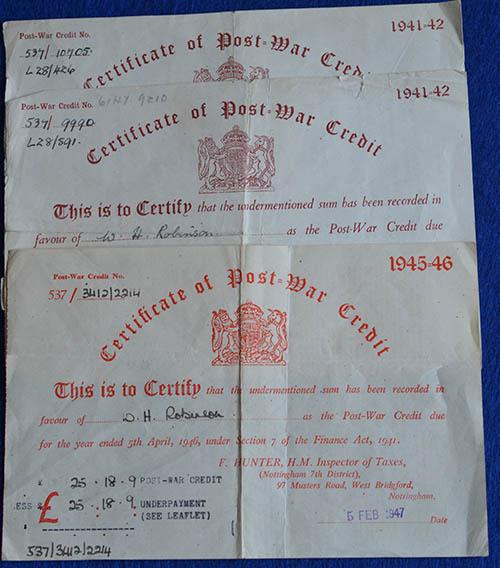 Post-War Credit No.
1941-42
537/10705
L28/426
Certificate of Post-War Credit
Post-War Credit No.
1941-42
537/9990
L28/591.
Certificate of Post-War Credit
This is to Certify that the undermentioned sum has been recorded in
favour of W. H. Robinson as the Post-War Credit due
Post-War Credit No.
1945-46
537/3412/2214
Certificate of Post-War Credit
This is to Certify that the undermentioned sum has been recorded in
favour of W. H. Robinson as the Post-War Credit due
for the year ended 5th April, 1946, under Section 7 of the Finance Act, 1941.
F. HUNTER, H.M. Inspector of Taxes,
(Nottingham 7th District),
97 Musters Road, West Bridgford,
Nottingham.
£ 25 . 18 . 9 POST-WAR CREDIT
ESS £ 25 . 18 . 9. UNDERPAYMENT
(SEE LEAFLET)
£
5 FEB 1947
Date
537/3412/2214